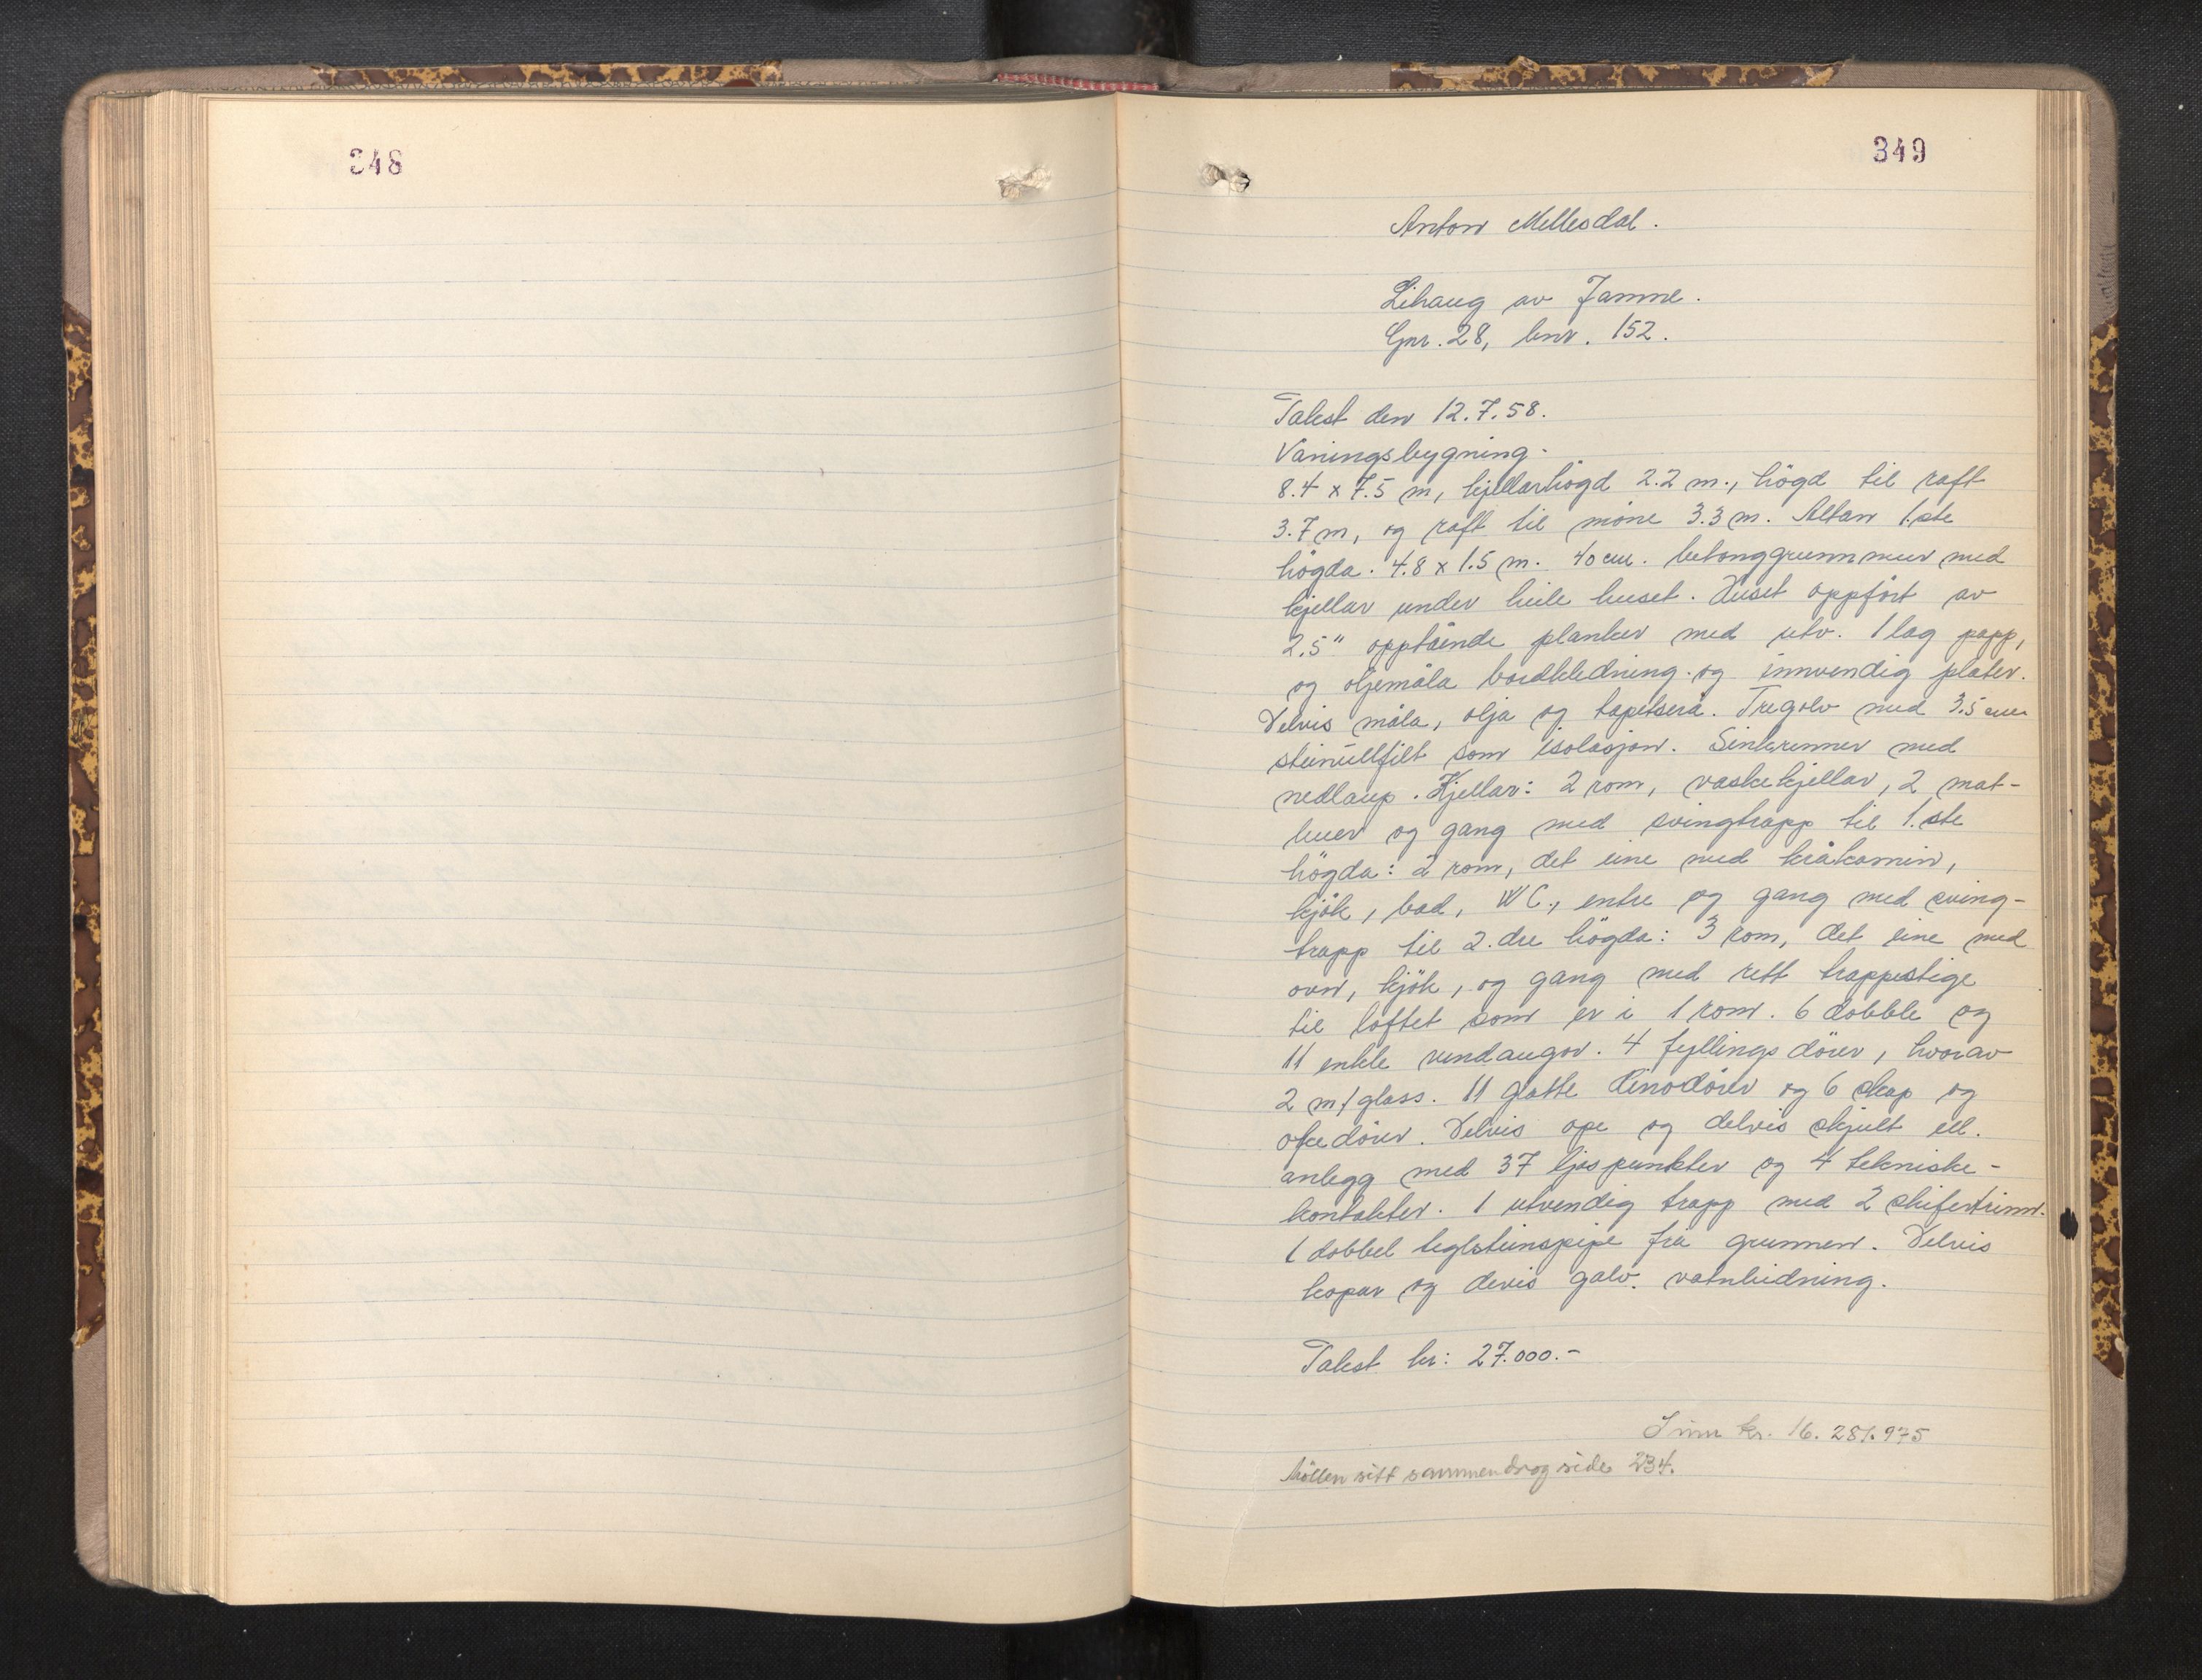 348
349
Anton Mellesdal.
Lihaug av Jamne.
Gnr. 28, bnr. 152.
Takst den 12.7.58.
Våningsbygning.
8.4 x 7.5 m, kjellarhögd 2.2 m., högd til raft
3.7 m, og raft til möne 3.3 m. Altan 1.ste
högda. 4.8 x 1.5 m. 40 cm. betonggrunnmur med
kjellar under heile huset. Huset oppfört av
2.5" oppståande planker med utv. 1 lag papp,
og oljemåla bordkledning. og innvendig plater.
Delvis måla, olja og tapetsera. Tregolv med 3.5 cm
steinullfilt som isolasjon. Sinkrenner med
nedlaup. Kjellar: 2 rom, vaskekjellar, 2 mat-
buer og gang med svingtrapp til 1.ste
högda: 2 rom, det eine med kråkamin,
kjök, bad, WC., entre og gang med sving-
trapp til 2.dre högda: 3 rom, det eine med
ovn, kjök, og gang med rett trappestige
til loftet som er i 1 rom. 6 dobble og
11 enkle vindaugor. 4 fyllings dörer, hvorav
2 m/glass. 11 glatte Kinodörer og 6 skap og
dörer. Delvis ope og delvis skjult ell.
anlegg med 37 ljospunkter og 4 tekniske-
kontakter. 1 utvendig trapp med 2 skifertrinn.
1 dobbel teglsteinspipe fra grunnen. Delvis
kopar og devis galv. vatnleidning.
Takst kr: 27.000.-
Sum kr. 16.281.975
sitt sammendrag side 234.